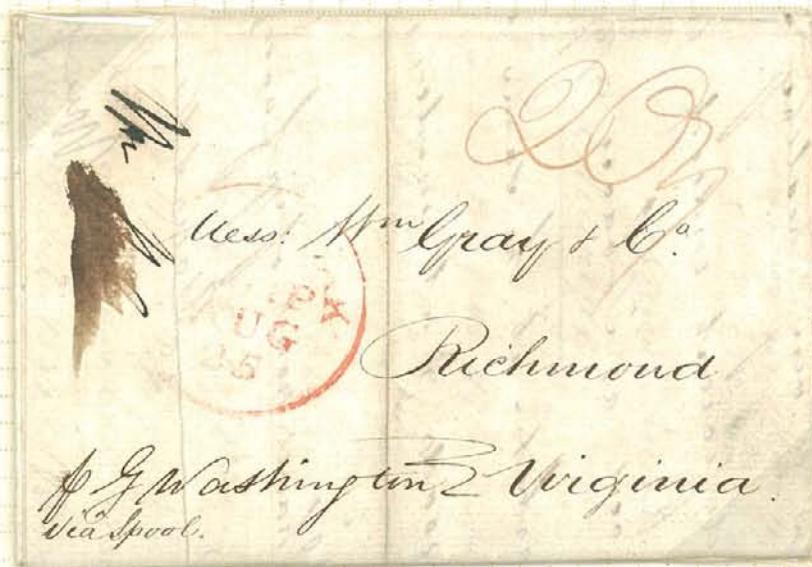 20¾
Mess: Wm Gray & Co.
AUG
25
Richmond
Virginia.
p G Washington
Via Lpool.